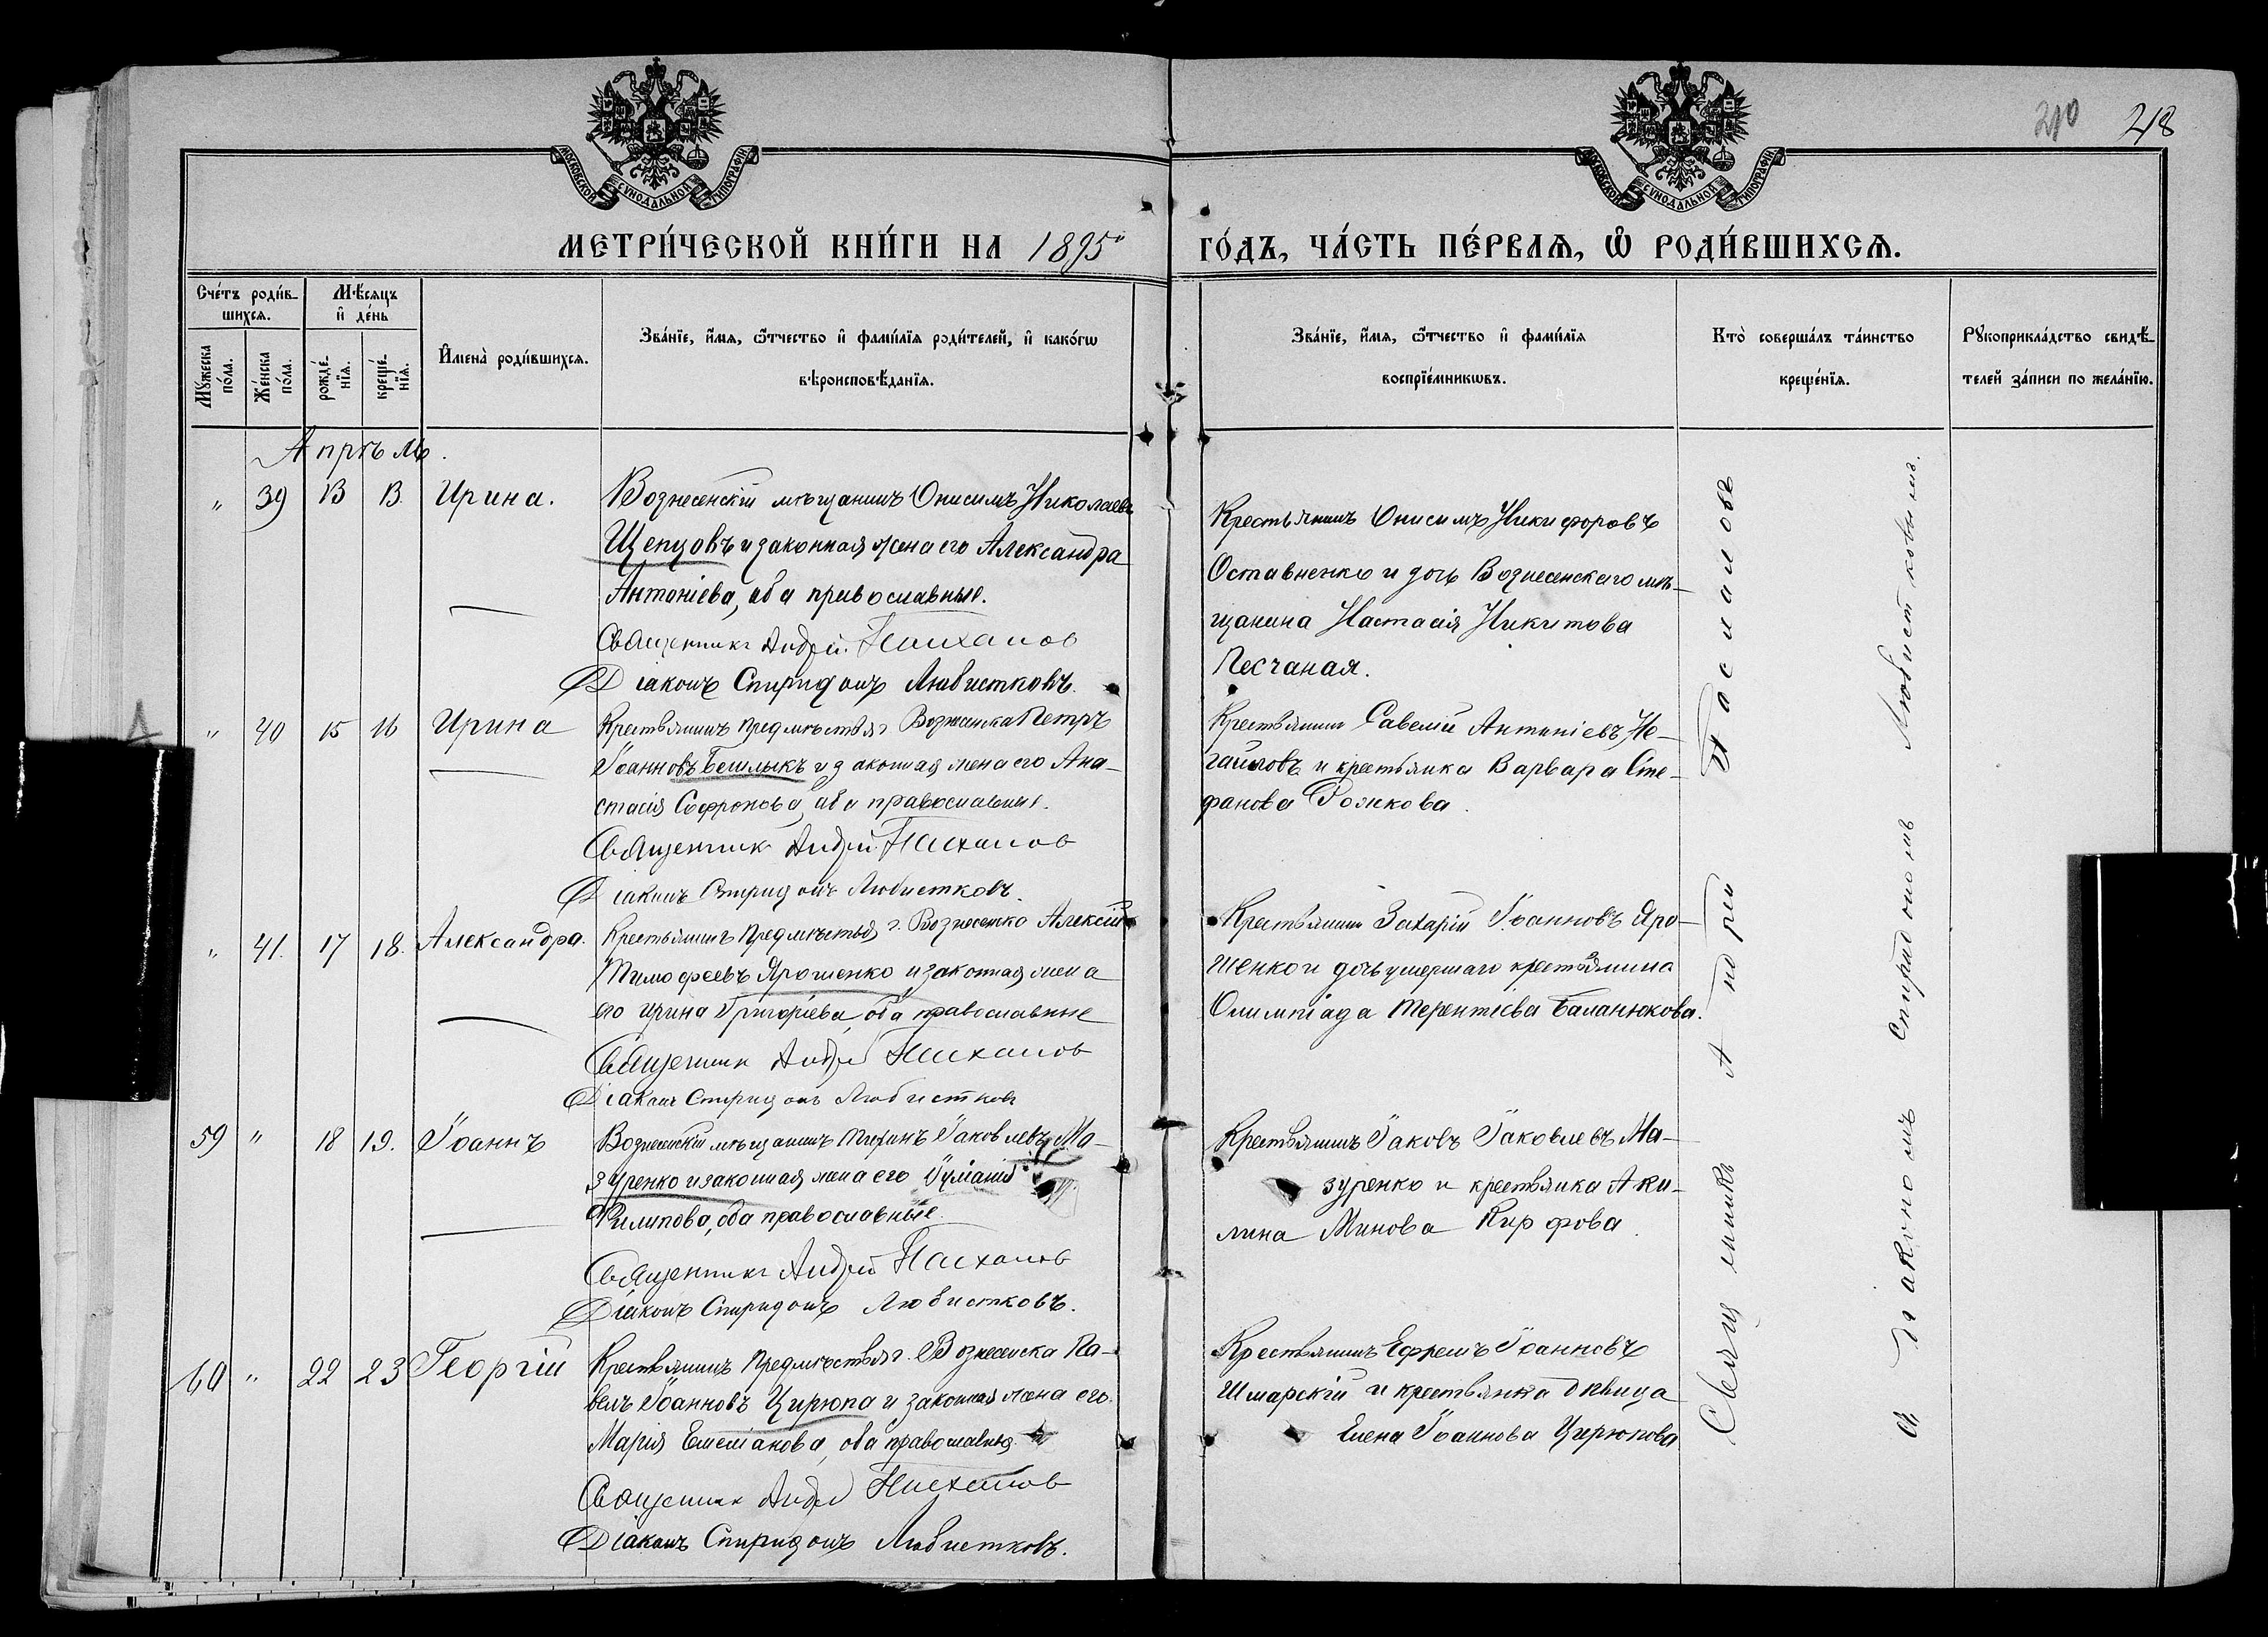 210 218
МОСКОВСКОЙ СѴНОДАЛЬНОЙ ТИПОГРАФІИ
МОСКОВСКОЙ СѴНОДАЛЬНОЙ ТИПОГРАФІИ
МЕТРИ́ЧЕСКОЙ КНИ́ГИ НА 1895 ГО́ДЪ, ЧА́СТЬ ПЕ́РВАѦ, Ѡ҆ РОДИ́ВШИХСѦ.
Сче́тъ роди́в-
шихсѧ.
Мꙋ́жеска по́ла.
Же́нска по́ла.
Мѣ́сѧцъ
и҆ де́нь
рожде́-
нїѧ.
креще́-
нїѧ.
И҆мена̀ роди́вшихсѧ.
Зва́нїе, и҆́мѧ, ѻ҆́тчество и҆ фами́лїѧ роди́телей, и҆ како́гѡ
вѣроисповѣ́данїѧ.
Зва́нїе, и҆́мѧ, ѻ҆́тчество и҆ фами́лїѧ
воспрїе́мникѡвъ.
Кто̀ соверша́лъ та́инство
креще́нїѧ.
Рꙋкоприкла́дство свидѣ́-
телей за́писи по жела́нїю.
Апрѣль.
" 39 13 13. Ирина.
Вознесенскій мѣщанинъ Онисимъ Николаевъ
Щепцовъ и законная жена его Александра
Антоніева, оба православные.
Священникъ Андрей
Діаконъ Спиридонъ Любистковъ.
Крестьянинъ Онисимъ Никифоровъ
Оставненко и дочь Вознесенскаго мѣ-
щанина Настасія Никитова
Песчаная.
" 40 15 16 Ирина
Крестьянинъ предмѣстья г. Вознесенска Петръ
Іоанновъ Бешлыкъ и законная жена его Ана-
стасія Софронова, оба православные.
Священникъ Андрей
Діаконъ Спиридонъ Любистковъ.
Крестьянинъ Савелій Антоніевъ Но-
гайловъ и крестьянка Варвара Сте-
фанова Рожкова.
" 41. 17 18. Александра.
Крестьянинъ Предмѣстья г. Вознесенска Алексій
Тимофеевъ Ярошенко и законная жена
его Ирина Григоріева, оба православные
Священникъ Андрей
Діаконъ Спиридонъ Любистковъ
Крестьянинъ Захарій Іоанновъ Яро-
шенко и дочь умершаго крестьянина
Олимпіада Терентіева Баланюкова.
59 " 18 19. Іоаннъ
Вознесенскій мѣщанинъ Іаковлевъ Ма-
зуренко и законная жена его Іуліанія
Филипова, оба православные.
Священникъ Андрей
Діаконъ Спиридонъ Любистковъ.
Крестьянинъ Іаковъ Іаковлевъ Ма-
зуренко и крестьянка Аки-
лина Минова Кирфова.
60 " 22 23 Георгій
Крестьянинъ Предмѣстья г. Вознесенска Па-
велъ Іоанновъ Цирюпа и законная жена его
Марія Емеліанова, оба православные
Священникъ Андрей
Діаконъ Спиридонъ Любистковъ.
Крестьянинъ Ефремъ Іоанновъ
Шмарскій и крестьянка дѣвица
Елена Іоаннова Цирюпова
Священникъ Андрей
съ діакономъ Спиридономъ Любистковымъ.